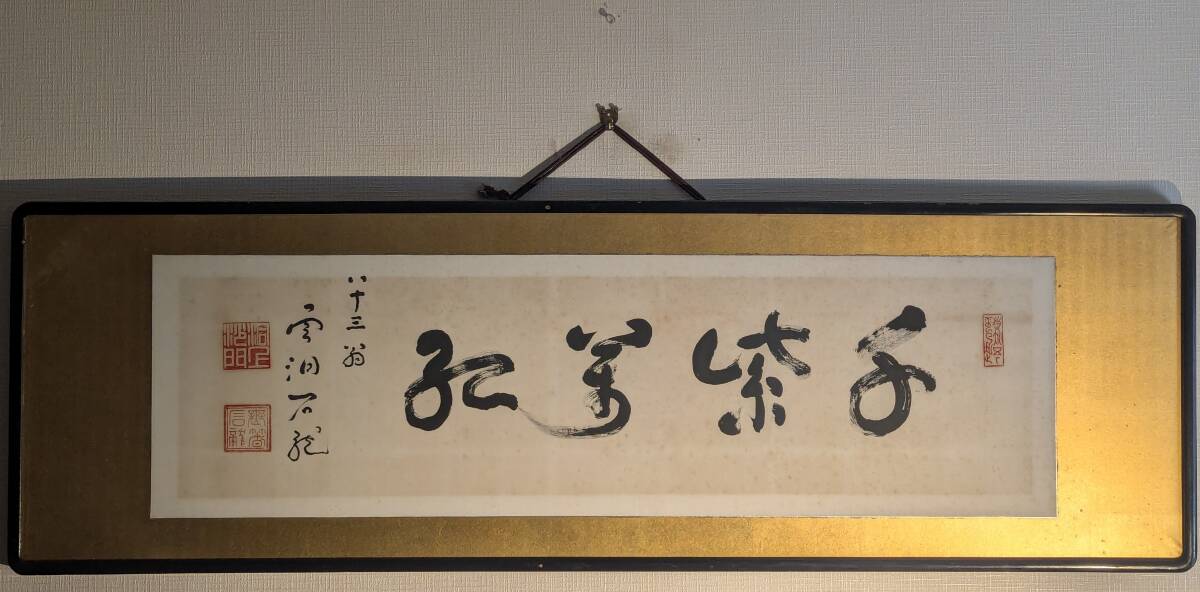 千紫萬紅
八十三翁
雲洞石龍